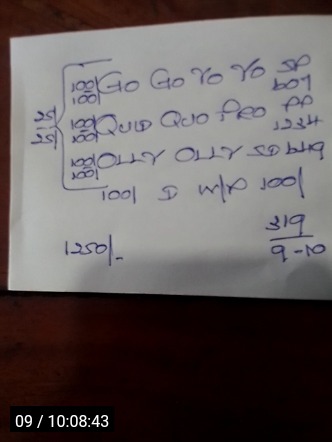 100/ GO GO YO YO SP
100/ 607
25/ 100/ QUID QUO PRO PP
25/ 100/ 1234
100/ OLLY OLLY SD 6419
100/
100/ D W/P 100/
1250/- 319
9-10
09 / 10:08:43